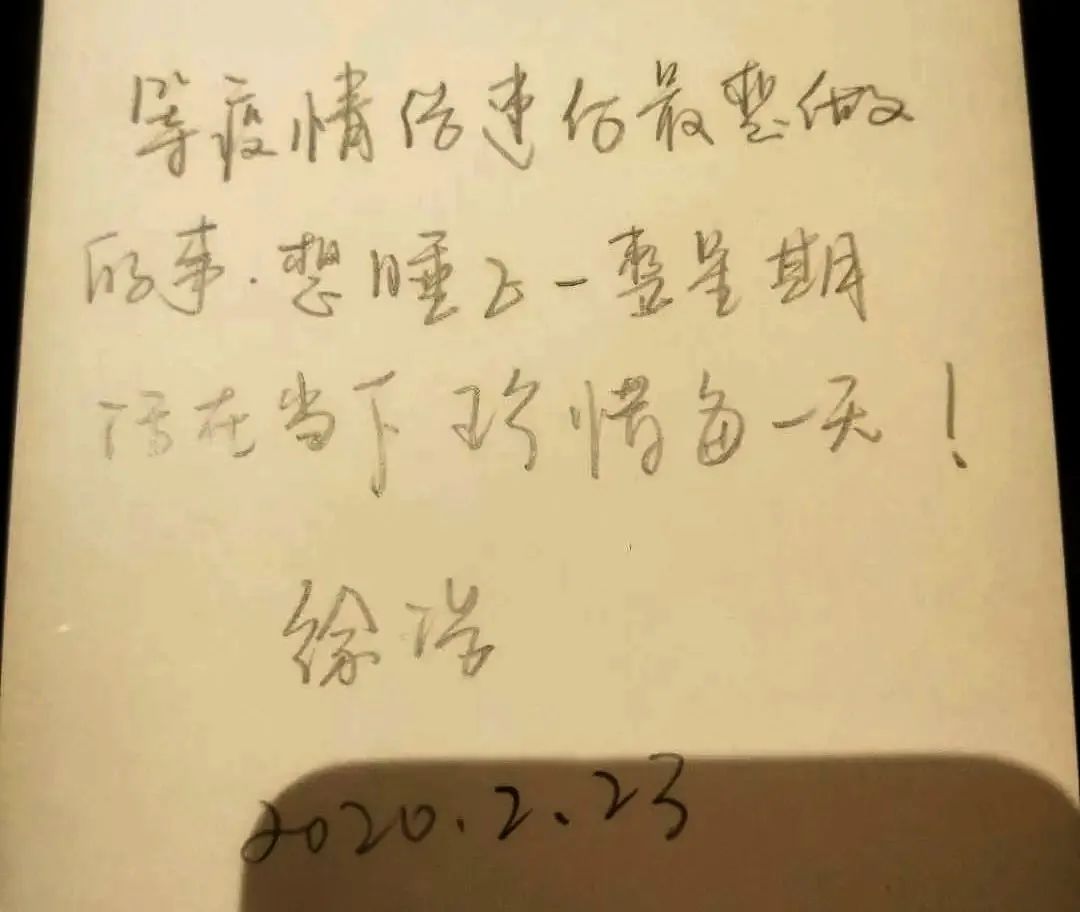 等疫情结速后最想做
的事.想睡上一整星期
活在当下 珍惜每一天!
徐浩
2020.2.23